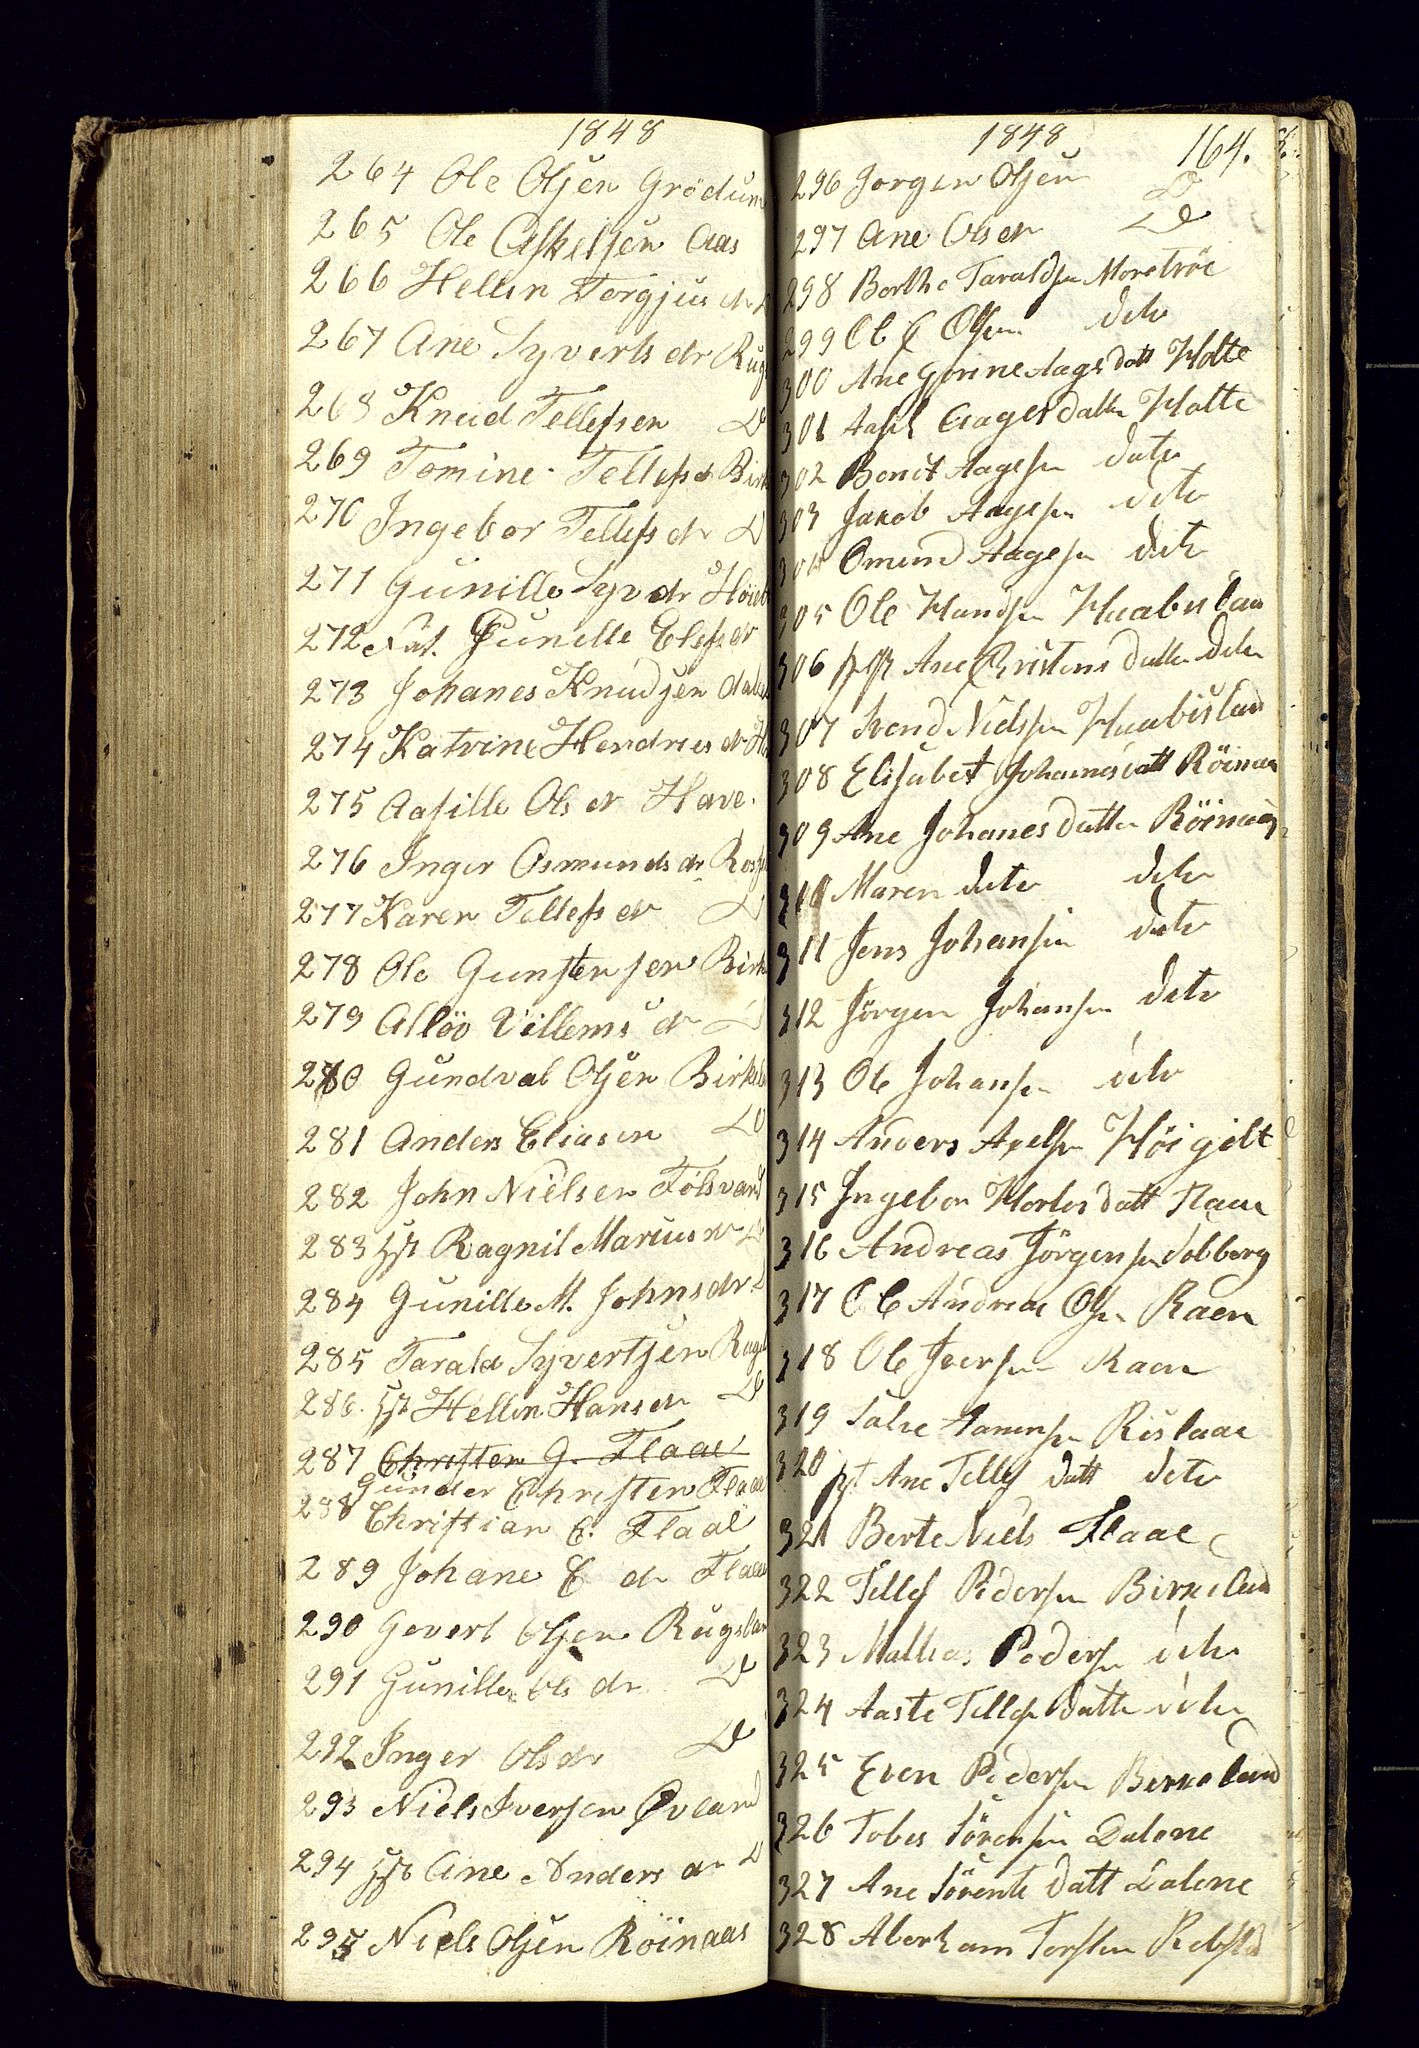 1848
264 Ole Olsen Grödum
265 Ole Askelsen Aas
266 Hellen Torgjus dr
267 Ane Syverts dr Rugs
268 Knud Tellefsen Do
269 Tomine Tellefs dr Birk
270 Ingebor Tellefs dr Do
271 Gunille Syv dr
272 Gunille Elefs dr
273 Johanes Knudsen Dale
274 Katrine Hendries dr
275 Aasille Ols dr Have.
276 Inger Osmunds dr
277 Karen Tellefs dr Do
278 Ole Gunstensen Birk
279 Allöv Villems dr Do
280 Gundval Olsen Birkel
281 Anders Eliasen Do
282 John Nielsen Fölsvand
283 Hst Ragnil Marius dr Do
284 Gunille M. Johns dr
285 Tarald Syvertsen Rugsl
286. Hst Hellen Hans dr Do
287 Christen G. Flaae
Gunder Christen Flaae
288 Christian C. Flaae
289 Johane C dr Flaae
290 Gevert Olsen Rugslan
291 Gunille Ols dr Do
292 Inger Ols dr Do
293 Niels Iversen Ovland
294 Hst Ane Anders dr Do
295 Niels Olsen Röinaas
1848 164.
296 Jorgen Olsen Do
297 Ane Ols dr Do
298 Berthe Taraldsen Moretröe
299 Ole Olsen deto
300 Ane Gorine Aags datt Holte
301 Aasil Aages datter Holte
302 Benct Aagesen deto
303 Jakob Aagesen deto
304 Omund Aagesen deto
305 Ole Handsen Haabislan
306 Ane Cristens datter deto
307 Svend Nielssen Haabislan
308 Elisabet Johannes datt Röinaas
309 Ane Johanes datter Röinaas
310 Maren deto deto
311 Jens Johansen deto
312 Jörgen Johansen deto
313 Ole Johansen deto
314 Anders Axelsen Höigilt
315 Ingebor datt Flaae
316 Andreas Jörgensen Dobberg
317 Ole Andreas Olsen Raen
318 Ole Iversen Raen
319 Salve Rislaae
320 Ane Tellefs datt deto
321 Berte Niels Flaae
322 Tellef Pedersen Birkeland
323 Mathias Pedersen deto
324 Aaste Tellefs datter deto
325 Even Pedersen Birkeland
326 Tobes Sörensen Dalene
327 Ane Sörents datt Dalene
328 Aberham Torsten Rebstad